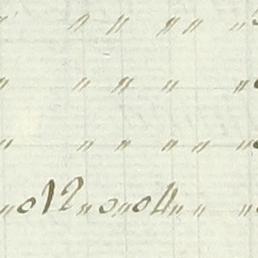 " " " " " "
" " " " "
" " " " " "
" 012 " 0 " 04 " " "